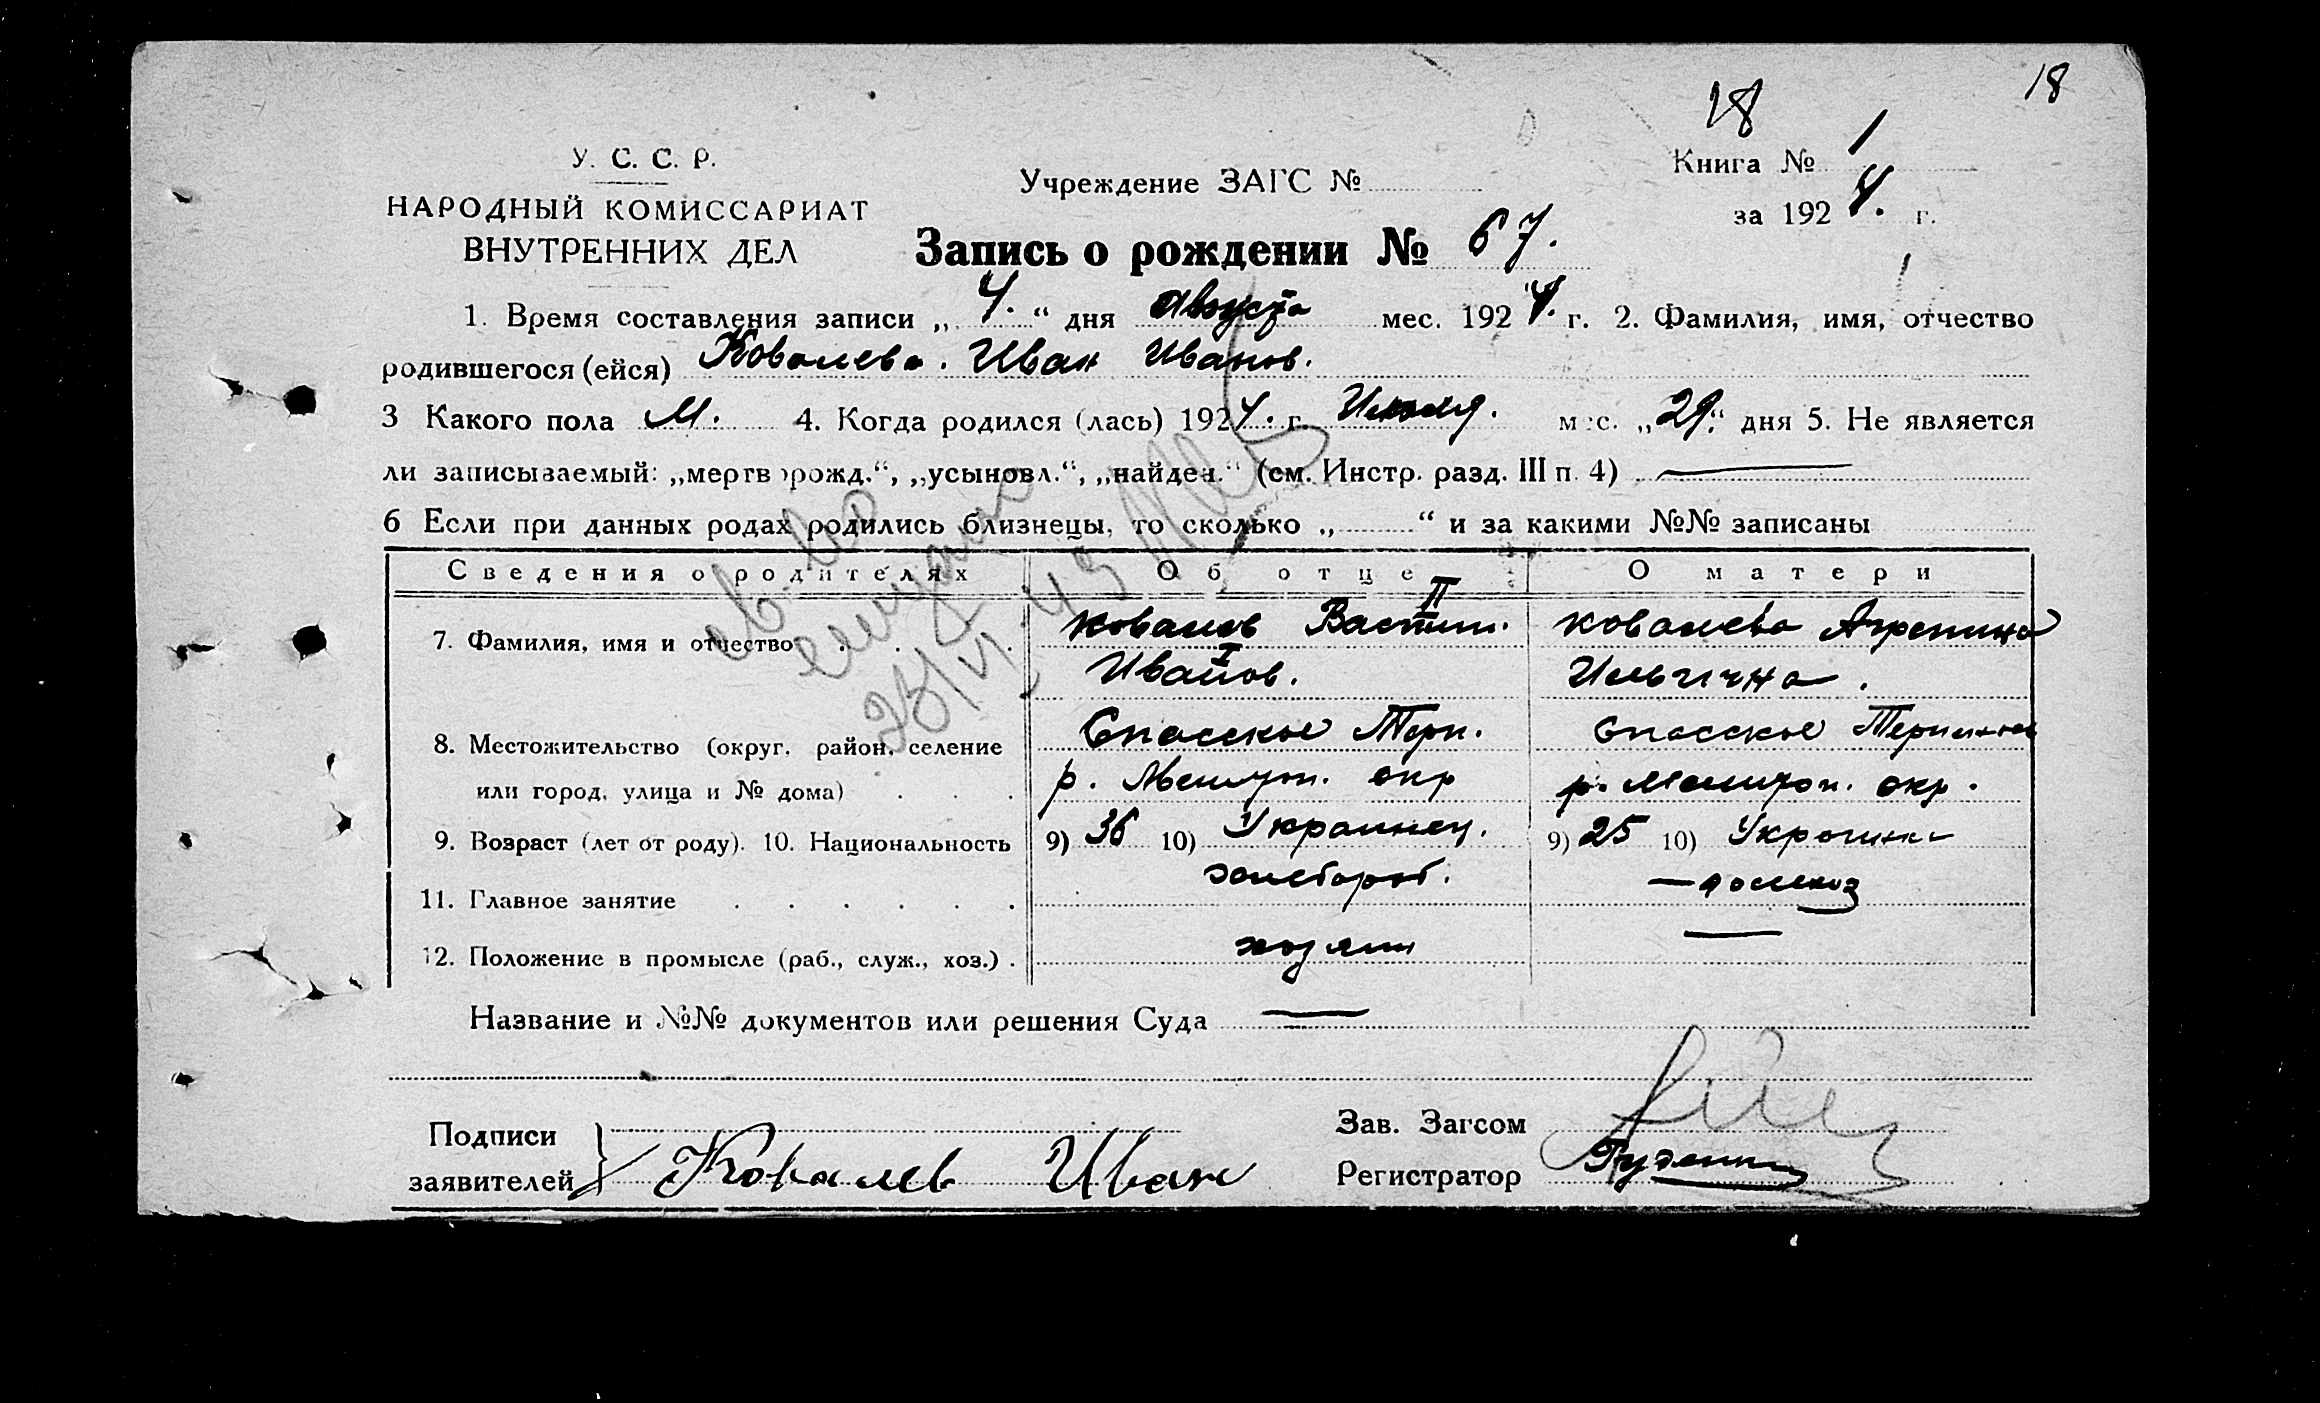 18
18
У. С. С. Р.
НАРОДНЫЙ КОМИССАРИАТ
ВНУТРЕННИХ ДЕЛ
Учреждение ЗАГС №
Книга № 1
за 1924. г.
Запись о рождении № 67.
1. Время составления записи „4.“ дня Августа мес. 1924. г. 2. Фамилия, имя, отчество
родившегося (ейся) Ковалева. Иван Иванов.
3 Какого пола М. 4. Когда родился (лась) 1924. г. Июля. мес. „29.“ дня 5. Не является
ли записываемый: „мертворожд.“, „усыновл.“, „найден.“ (см. Инстр. разд. III п. 4) —
6 Если при данных родах родились близнецы, то сколько „ “ и за какими №№ записаны
Сведения о родителях Об отце О матери
7. Фамилия, имя и отчество Ковалев II Ковалева Агрепина
I Иванов. Ильична.
8. Местожительство (округ, район, селение Спасское Терп. Спасское
или город, улица и № дома) р. Мелитоп. окр р. Мелитоп. окр.
9. Возраст (лет от роду). 10. Национальность 9) 36 10) Украинец. 9) 25 10)
11. Главное занятие хлебороб. — домхоз
12. Положение в промысле (раб., служ., хоз.) хозяин —
Название и №№ документов или решения Суда —
Подписи
заявителей } Ковалев Иван
Зав. Загсом
Регистратор